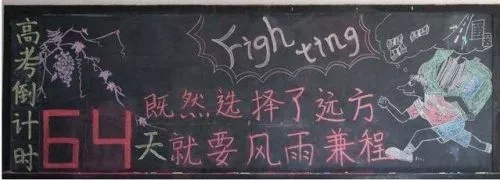 高考倒计时
Fighting
64天
既然选择了远方
就要风雨兼程